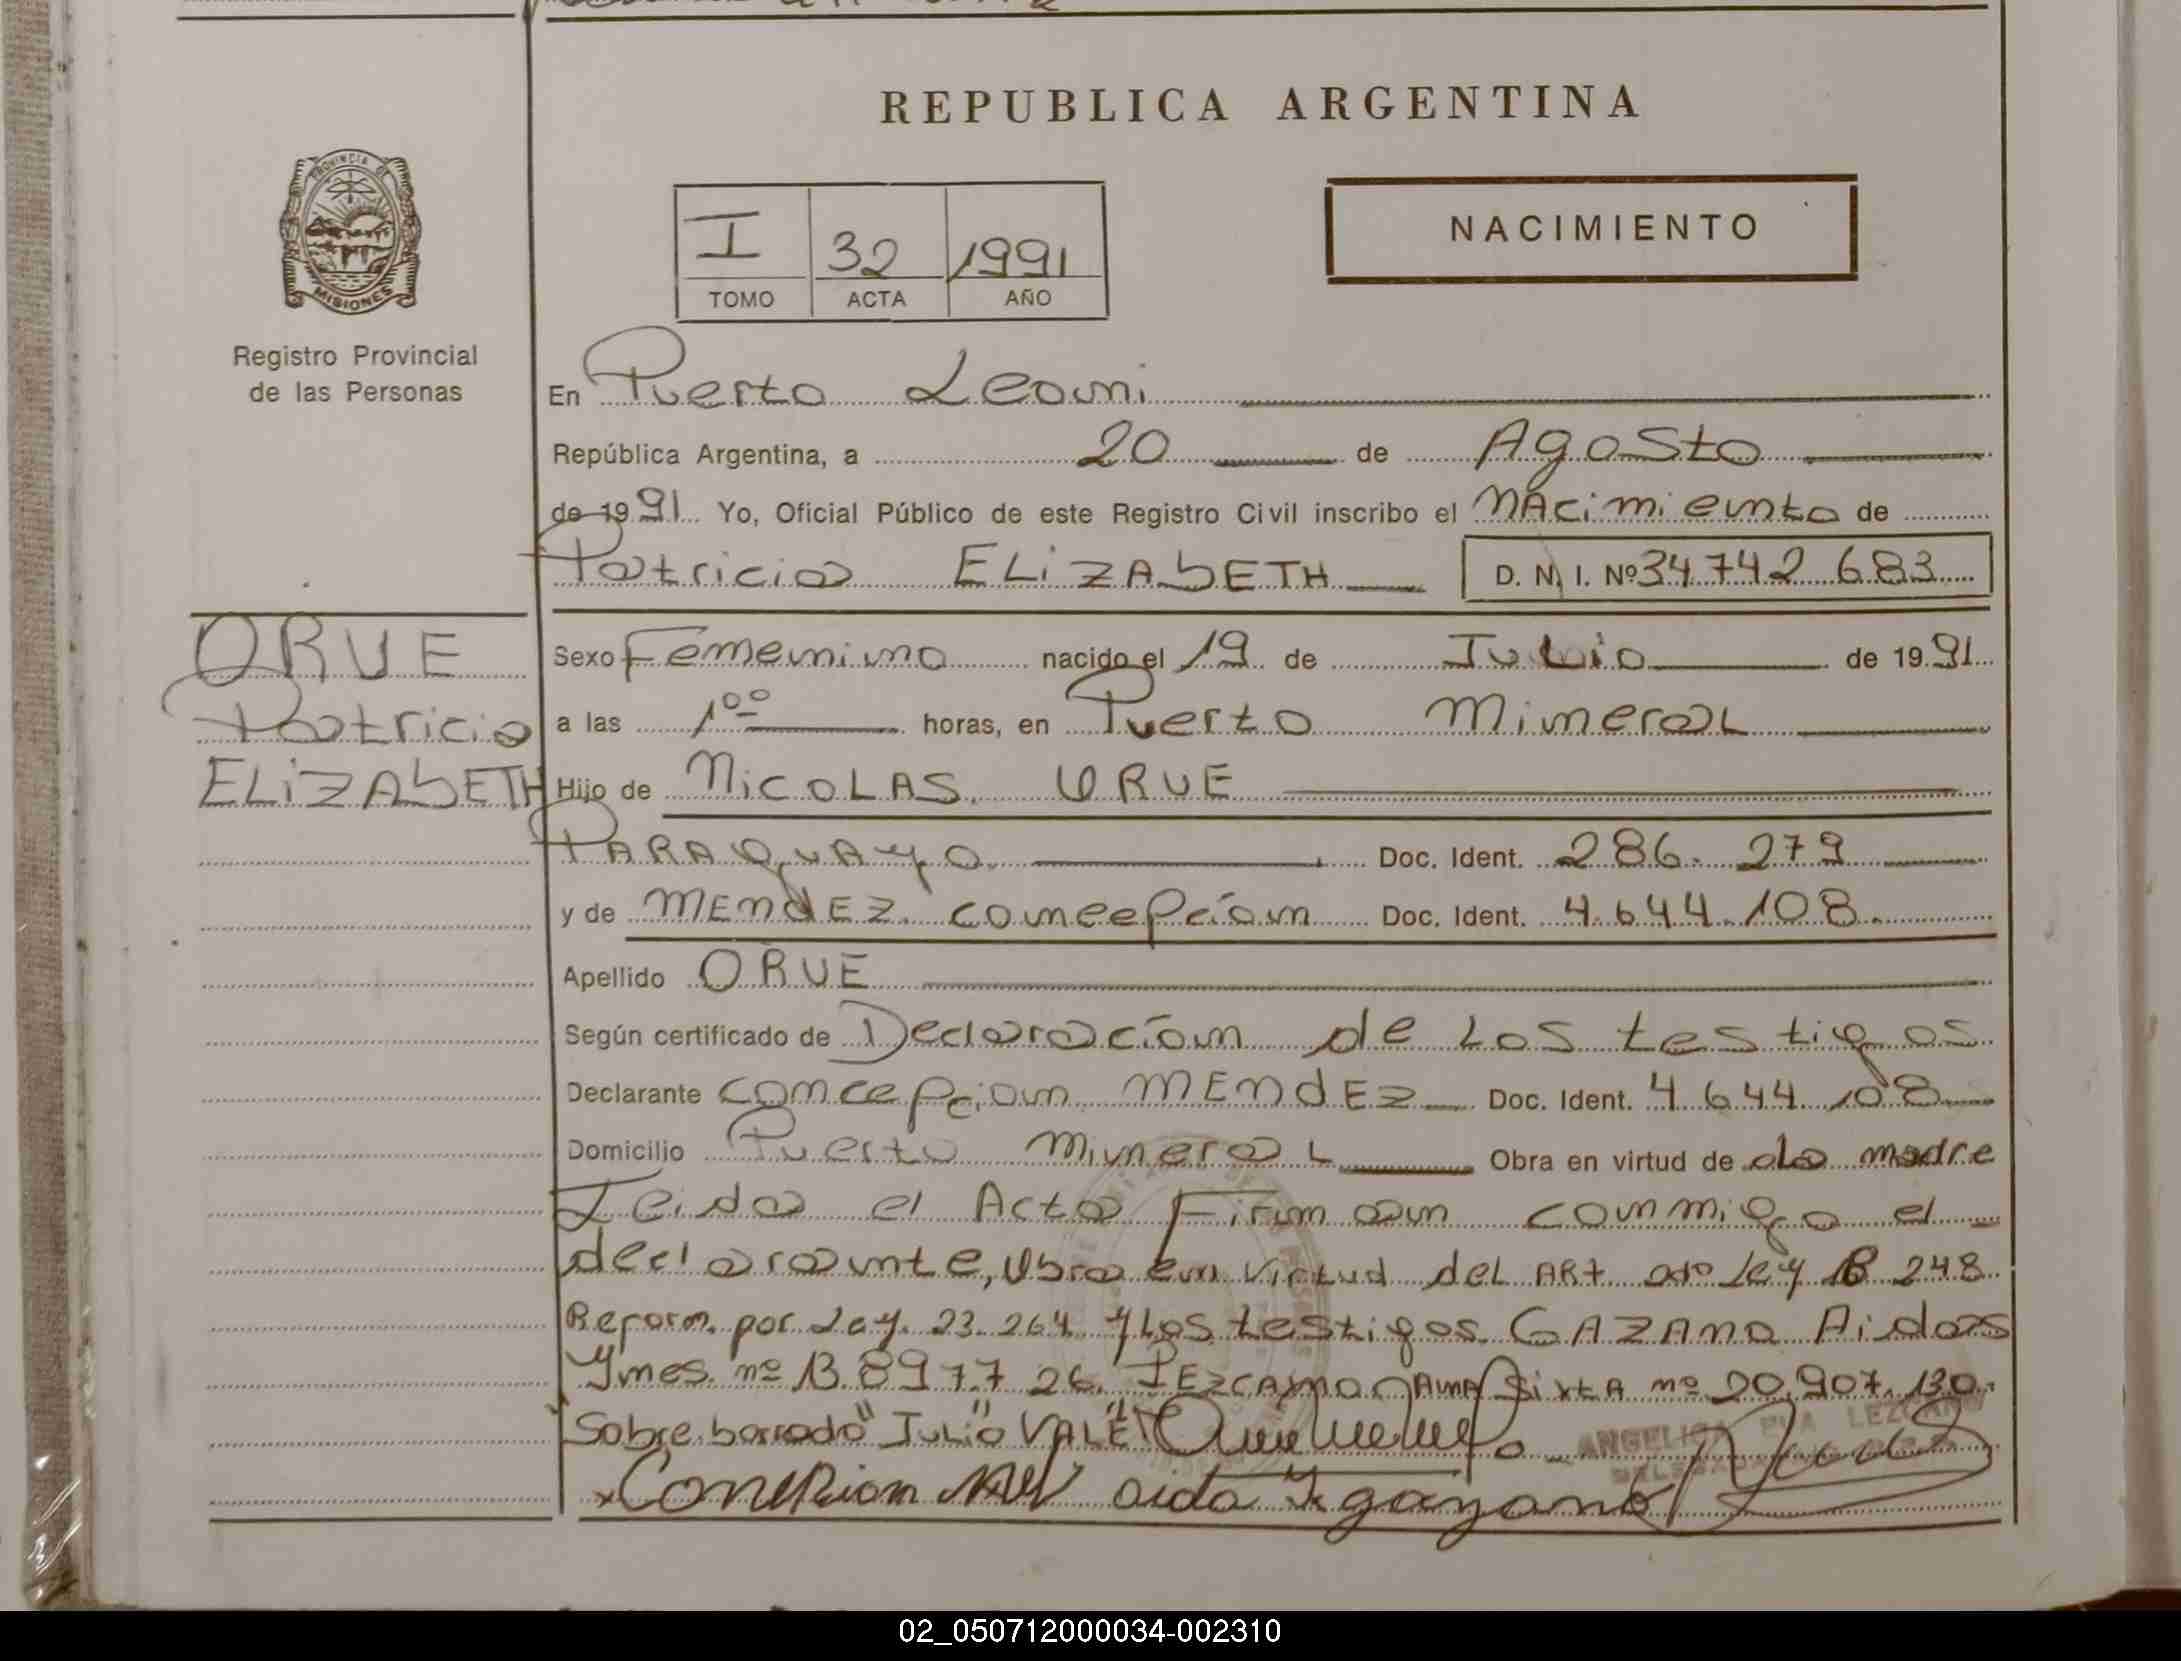 REPUBLICA ARGENTINA
PROVINCIA DE
MISIONES
Registro Provincial
de las Personas
I 32 1991
TOMO ACTA AÑO
NACIMIENTO
En Puerto Leoni
República Argentina, a 20 de Agosto
de 1991 Yo, Oficial Público de este Registro Civil inscribo el NAcimiento de
Patricia ELiZABETH D. N. I. Nº 34 742 683
ORUE
Patricia
ELiZABETH
Sexo Femenino nacido el 19 de Julio de 1991
a las 1⁰⁰ horas, en Puerto MineraL
Hijo de NicoLAS ORUE
PARAguAyo Doc. Ident. 286. 279
y de MEndEZ concepcion Doc. Ident. 4.644.108
Apellido ORUE
Según certificado de Declaracion de Los testigos
Declarante concepcion MEndEZ Doc. Ident. 4 644 108
Domicilio Puerto MineraL Obra en virtud de La madre
Leida el Acta Firman conmigo el
declarante, Obra en virtud deL ART Ley 18 248
Reform. por Ley. 23.264 y Los testigos GAZANO Aida
Ynes nº 13.897726. LEZCANO SixTA nº 20.907.130.
"Sobre borrado" "JuLio" VALE
ANGELICA LEZCANO
Aida Y gazano
02_050712000034-002310